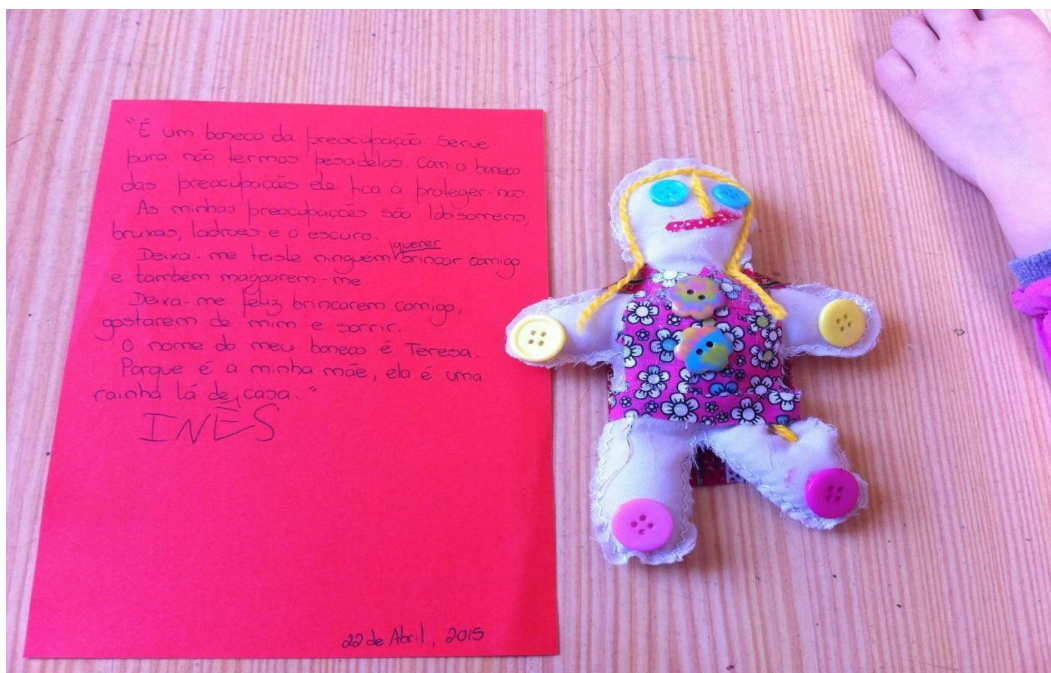 "É um boneco da preocupação serve
para não termos pesadelos. Com o boneco
das preocupações ele fica a proteger-nos.
As minhas preocupações são lobisomens,
bruxas, ladrões e o escuro.
Deixa-me triste ninguém querer brincar comigo
e também magoarem-me
Deixa-me feliz brincarem comigo,
gostarem de mim e sorrir.
O nome do meu boneco é Teresa.
Porque é a minha mãe, ela é uma
rainha lá de casa."
INÊS
22 de Abril, 2015